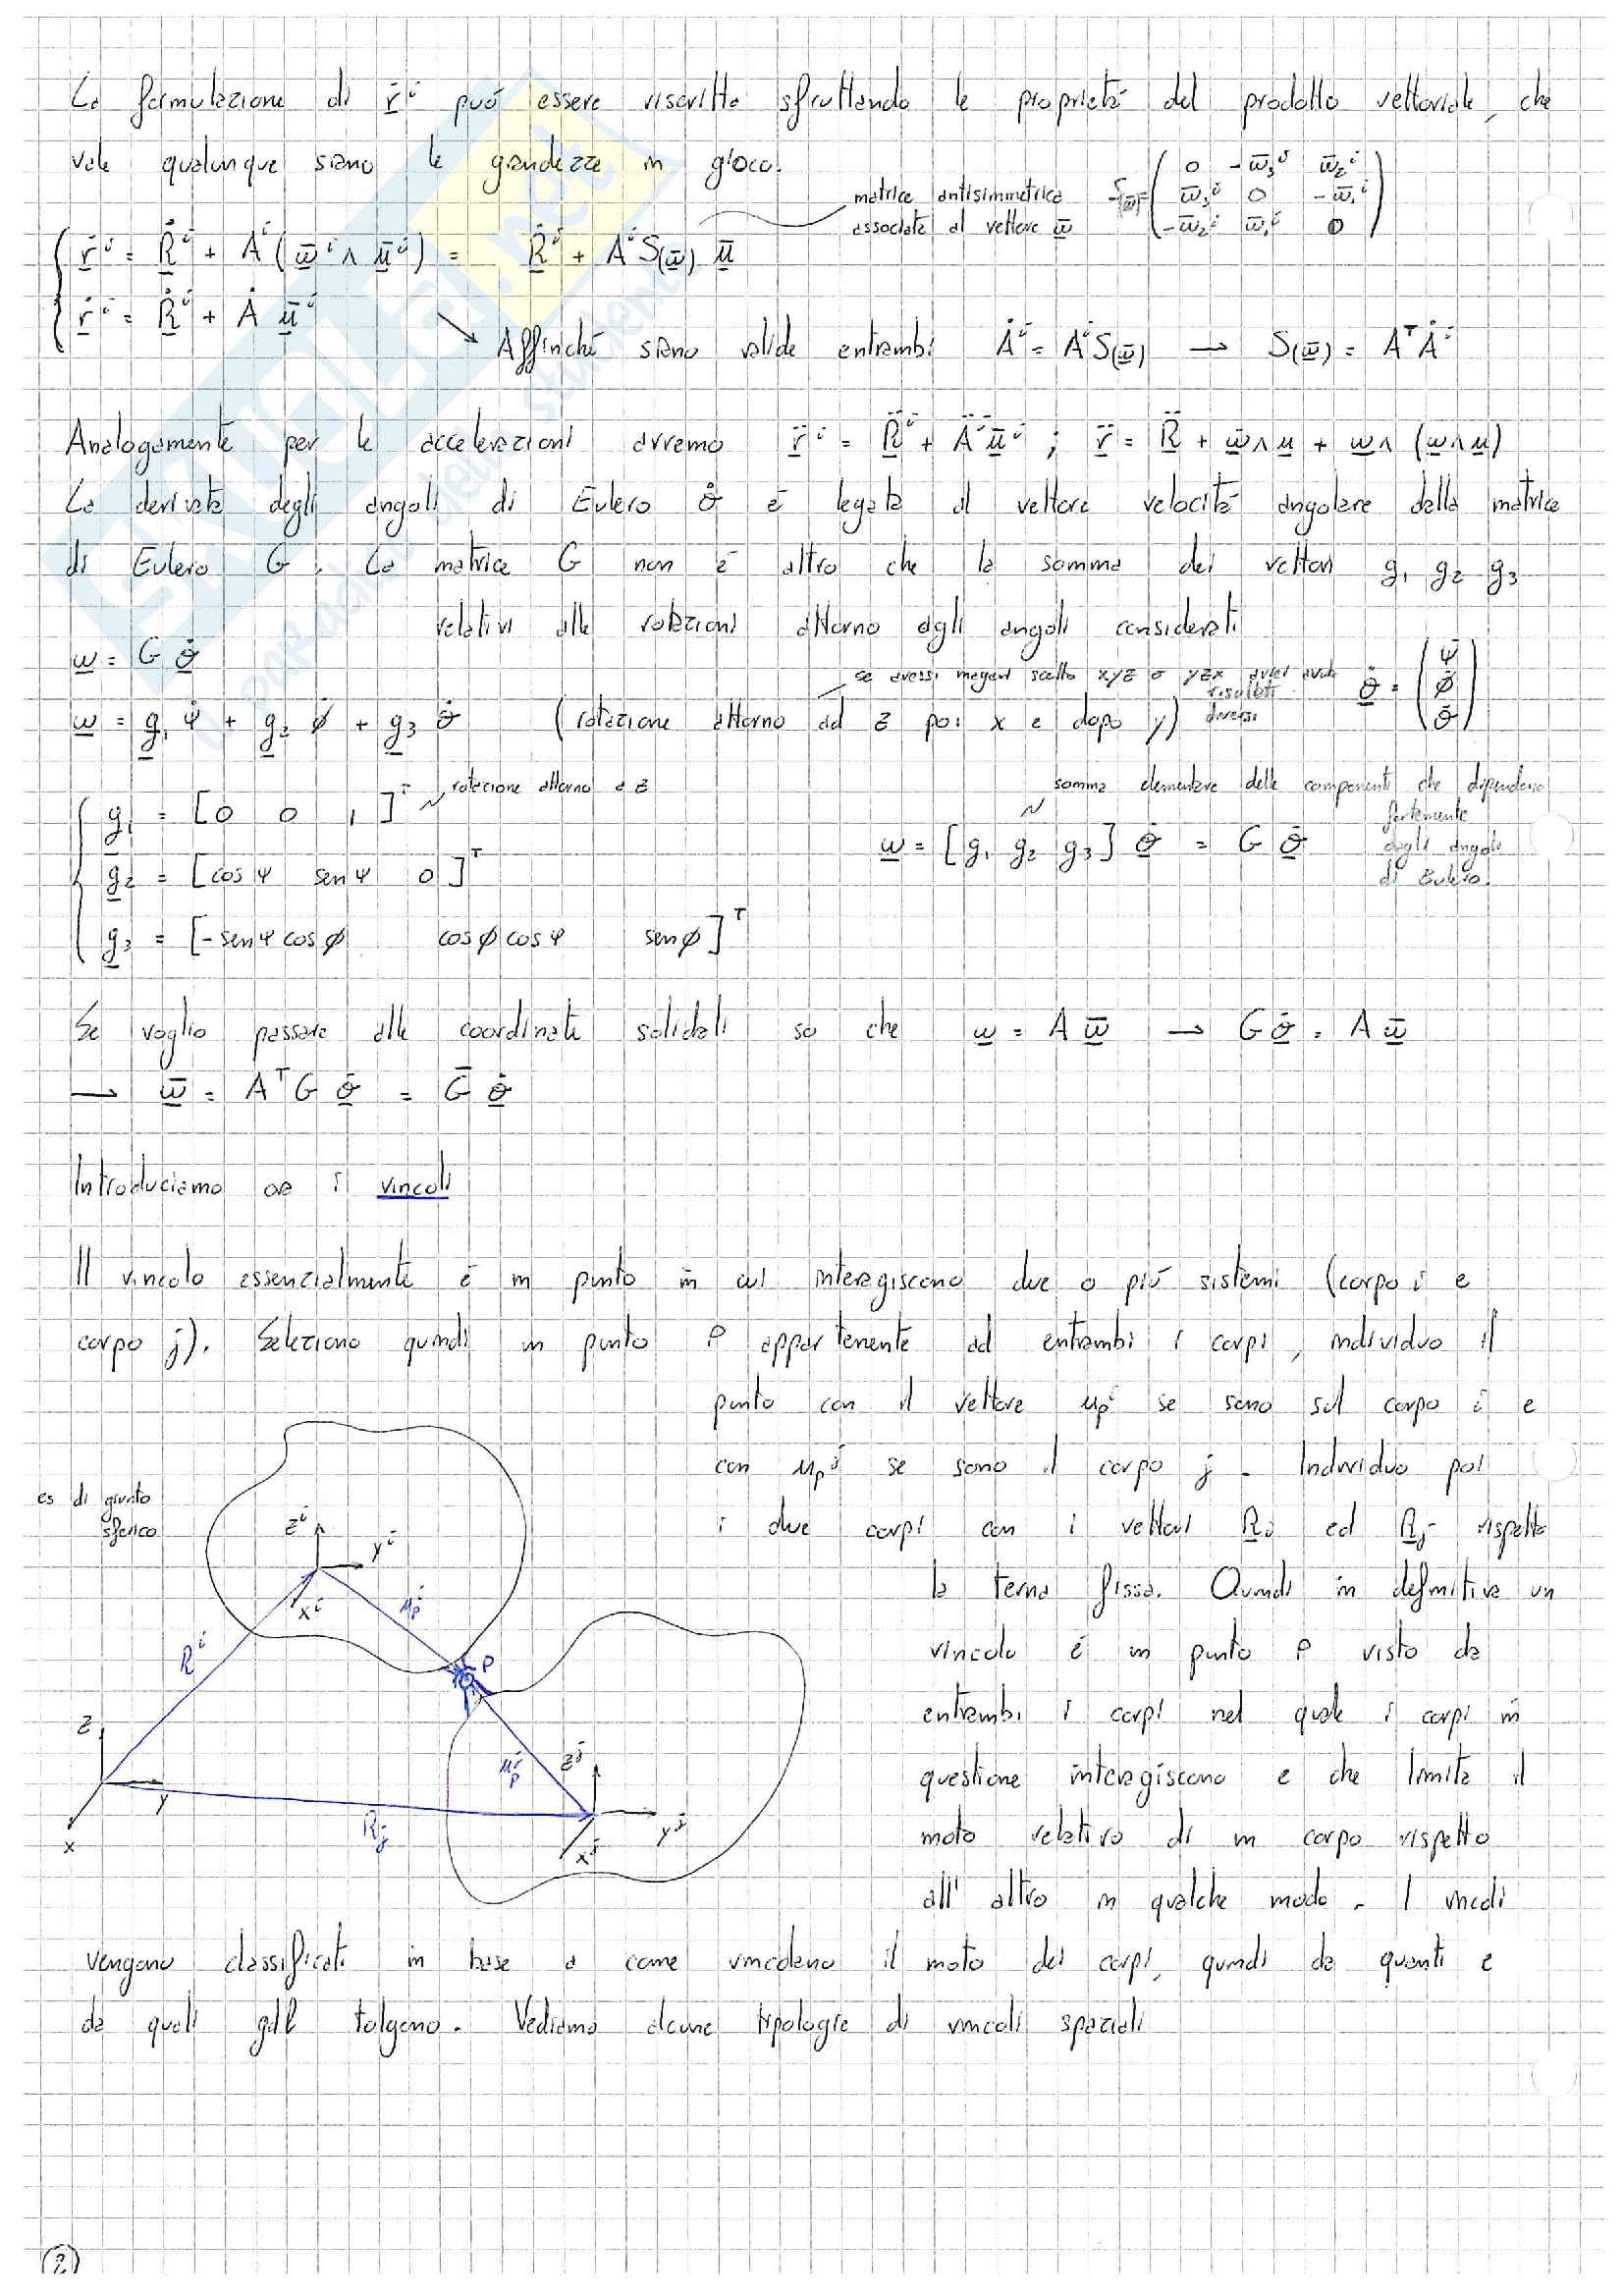 La formulazione di ṙⁱ può essere riscritta sfruttando le proprietà del prodotto vettoriale, che
vale qualunque siano le grandezze in gioco.
matrice antisimmetrica
associata al vettore ω̄
S(ω̄) = ( 0 -ω̄₃ⁱ ω̄₂ⁱ
ω̄₃ⁱ 0 -ω̄₁ⁱ
-ω̄₂ⁱ ω̄₁ⁱ 0 )
ṙⁱ = Ṙⁱ + Aⁱ(ω̄ⁱ ∧ ūⁱ) = Ṙⁱ + AⁱS(ω̄) ū
ṙⁱ = Ṙⁱ + Ȧ ūⁱ
Affinché siano valide entrambi Ȧⁱ = AⁱS(ω̄) → S(ω̄) = AᵀȦⁱ
Analogamente per le accelerazioni avremo r̈ⁱ = R̈ⁱ + Äⁱūⁱ ; r̈ = R̈ + ω̇∧u + ω∧(ω∧u)
La derivata degli angoli di Eulero θ̇ è legata al vettore velocità angolare dalla matrice
di Eulero G. La matrice G non è altro che la somma dei vettori g₁ g₂ g₃
relativi alle rotazioni attorno agli angoli considerati
ω = G θ̇
se avessi magari scelto xyz o yzx avrei avuto
risultati
diversi
ω = g₁ ψ̇ + g₂ ϕ̇ + g₃ θ̇ (rotazione attorno ad z poi x e dopo y)
θ̇ = ( ψ̇
ϕ̇
θ̇ )
g₁ = [0 0 1]ᵀ rotazione attorno a z
g₂ = [cosψ senψ 0]ᵀ
g₃ = [-senψ cosϕ cosϕ cosψ senϕ]ᵀ
somma elementare delle componenti che dipendono
fortemente
dagli angoli
di Eulero.
ω = [g₁ g₂ g₃] θ̇ = G θ̇
Se voglio passare alle coordinate solidali so che ω = A ω̄ → G θ̇ = A ω̄
→ ω̄ = AᵀG θ̇ = Ḡ θ̇
Introduciamo ora i vincoli
Il vincolo essenzialmente è un punto in cui interagiscono due o più sistemi (corpo i e
corpo j). Seleziono quindi un punto P appartenente ad entrambi i corpi, individuo il
punto con il vettore uₚⁱ se sono sul corpo i e
con uₚʲ se sono il corpo j. Individuo poi
i due corpi con i vettori Rᵢ ed Rⱼ rispetto
la terna fissa. Quindi in definitiva un
vincolo è un punto P visto da
entrambi i corpi nel quale i corpi in
questione interagiscono e che limita il
moto relativo di un corpo rispetto
all'altro in qualche modo. I vincoli
vengono classificati in base a come vincolano il moto dei corpi, quindi da quanti e
da quali gdl tolgono. Vediamo alcune tipologie di vincoli spaziali
es di giunto
sferico
zⁱ
yⁱ
xⁱ
uₚⁱ
Rⁱ
P
z
y
x
uₚʲ
zʲ
Rⱼ
yʲ
xʲ
2